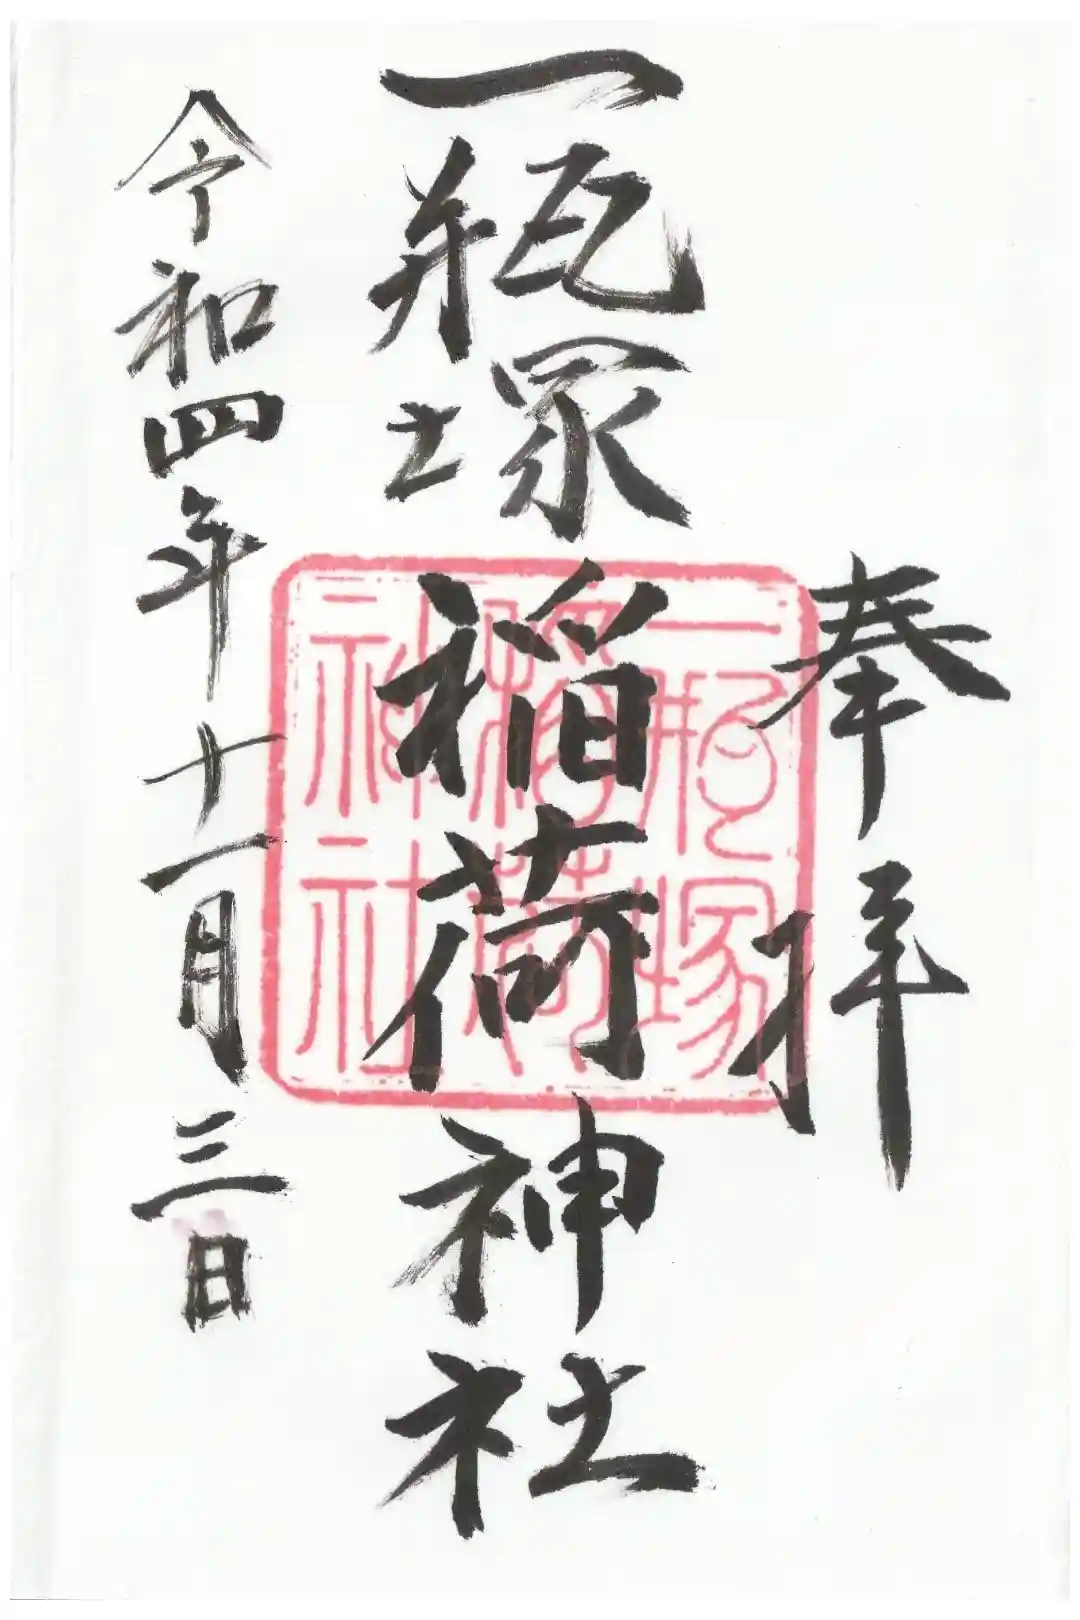 奉拝
一瓶塚稲荷神社
一瓶塚
稲荷
神社
令和四年十一月三日